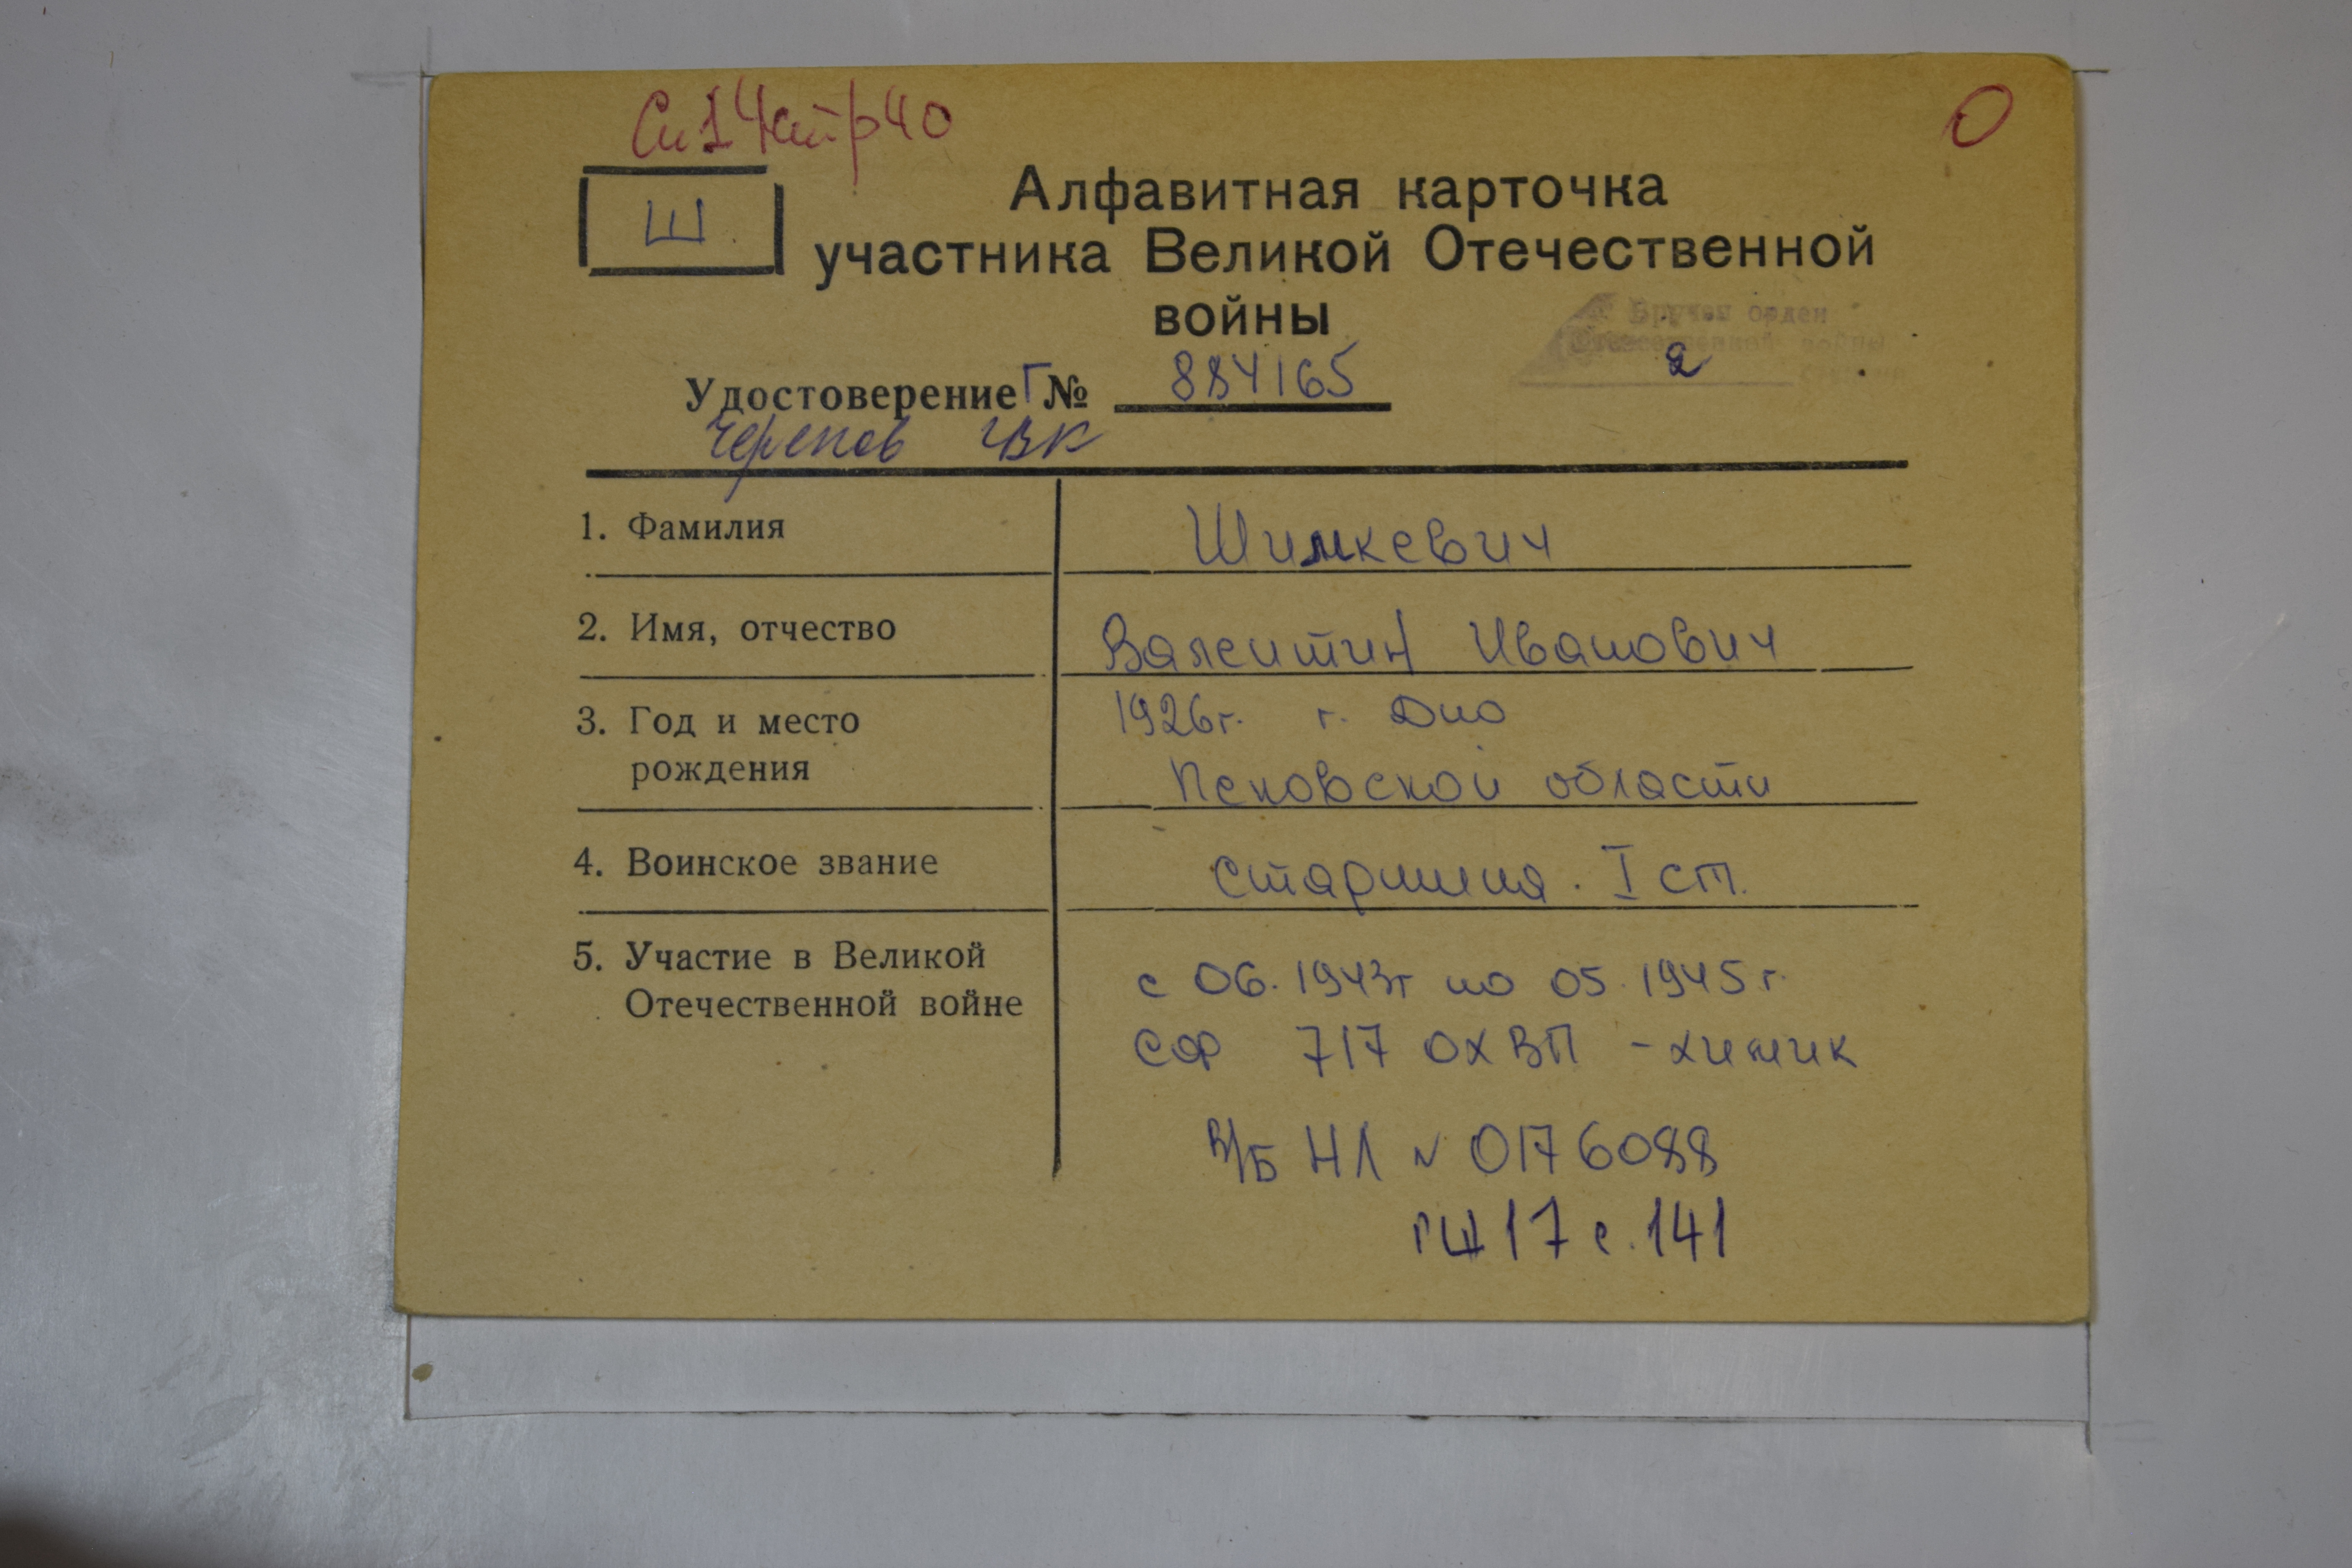 Сп14 стр40
О
Ш
Алфавитная карточка
участника Великой Отечественной
войны
Вручен орден
Отечественной войны
2 степени
Удостоверение Г № 884165
Черепов ГВК
1. Фамилия Шимкевич
2. Имя, отчество Валентин Иванович
3. Год и место 1926г. г. Дно
рождения Псковской области
4. Воинское звание старшина. I ст.
5. Участие в Великой с 06.1943г по 05.1945г.
Отечественной войне
СФ 717 ОХВП - химик
в/б НЛ № 0176088
17 с. 141